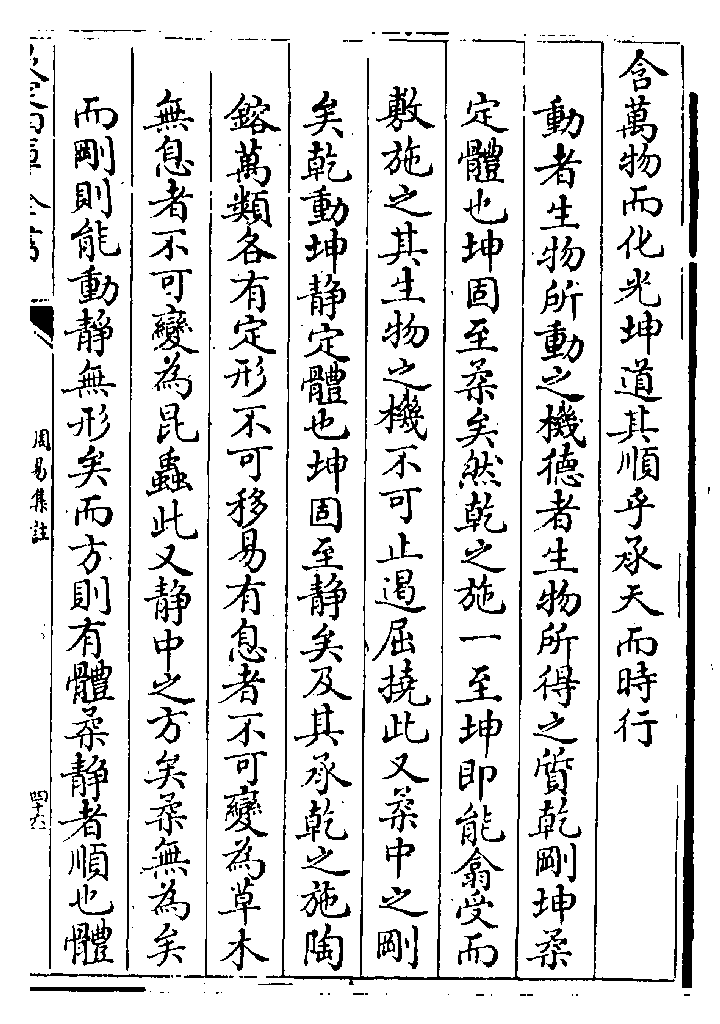 含萬物而化光坤道其順乎承天而時行
動者生物所動之機德者生物所得之質乾剛坤柔
定體也坤固至柔矣然乾之施一至坤即能翕受而
敷施之其生物之機不可止遏屈撓此又柔中之剛
矣乾動坤静定體也坤固至静矣及其承乾之施陶
鎔萬類各有定形不可移易有息者不可變為草木
無息者不可變為昆蟲此又静中之方矣柔無為矣
而剛則能動静無形矣而方則有體柔静者順也體
欽定四庫全書
周易集註
四十六